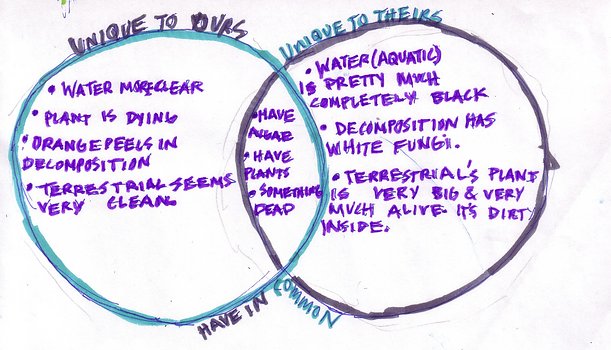 UNIQUE TO OURS
• WATER MORE CLEAR
• PLANT IS DYING
• ORANGE PEELS IN
DECOMPOSITION
• TERRESTRIAL SEEMS
VERY CLEAN.
UNIQUE TO THEIRS
• WATER (AQUATIC)
IS PRETTY MUCH
COMPLETELY BLACK
• DECOMPOSITION HAS
WHITE FUNGI.
• TERRESTRIAL'S PLANT
IS VERY BIG & VERY
MUCH ALIVE. IT'S DIRTY
INSIDE.
• HAVE
ALGAE
• HAVE
PLANTS
• SOMETHING
DEAD
HAVE IN COMMON